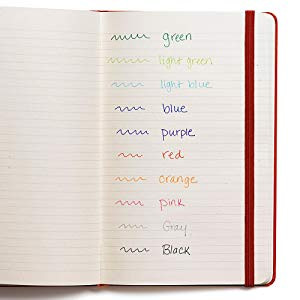 green
light green
light blue
blue
purple
red
orange
pink
Gray
Black